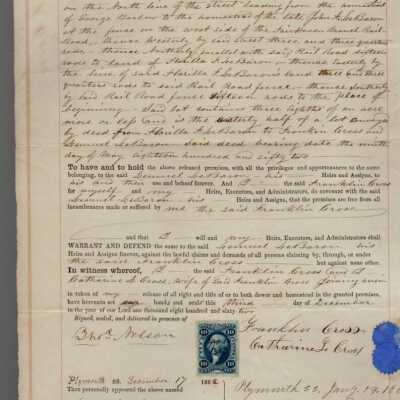 on the North line of the street leading from the homestead
of George Barlow to the homestead of the late John LeBaron
at the fence on the west side of the Fairhaven Branch Rail
Road, thence Westerly by said Street three and three quarters
rods, thence Northerly parallel with said Rail Road sixteen
rods to land of LeBaron thence Easterly by
the line of said LeBaron's land three and three
quarters rods to said Rail Road fence thence Southerly
by said Rail Road fence sixteen rods to the place of
beginning. Said lot contains three eighths of an acre
more or less and is the Easterly half of a lot conveyed
by deed from LeBaron to Franklin Cross and
Samuel LeBaron said deed bearing date the ninth
day of May eighteen hundred and fifty two
To have and to hold the above released premises, with all the privileges and appurtenances to the same
belonging, to the said Samuel LeBaron his Heirs and Assigns, to
his and their use and behoof forever. And I the said Franklin Cross
for myself and my Heirs, Executors, and Administrators, do covenant with the said
Samuel LeBaron his Heirs and Assigns, that the premises are free from all
incumbrances made or suffered by me the said Franklin Cross
and that I will and my Heirs, Executors, and Administrators shall
WARRANT AND DEFEND the same to the said Samuel LeBaron his
Heirs and Assigns forever, against the lawful claims and demands of all persons claiming by, through, or under
the said Franklin Cross but against none other.
In witness whereof, I the said Franklin Cross and I
Catharine S. Cross, wife of said Franklin Cross joining
in token of my release of all right and title of or to both dower and homestead in the granted premises,
have hereunto set our hands and seals this third day of December
in the year of our Lord one thousand eight hundred and sixty two.
Signed, sealed, and delivered in presence of
Nelson
Franklin Cross
Catharine S. Cross
10 10
Plymouth ss. December 17 186
Then personally appeared the above named
Plymouth ss. Jany 19.